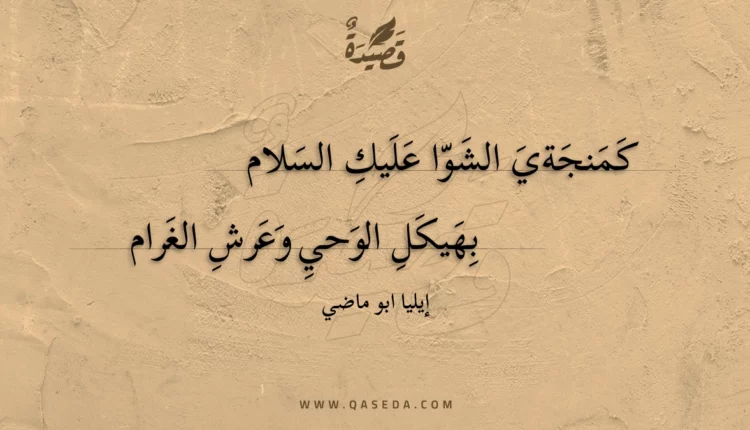 قَصِيدَةٌ
كَمَنجَةيَ الشَوّا عَلَيكِ السَلام
بِهَيكَلِ الوَحيِ وَعَرشِ الغَرام
إيليا ابو ماضي
WWW.QASEDA.COM